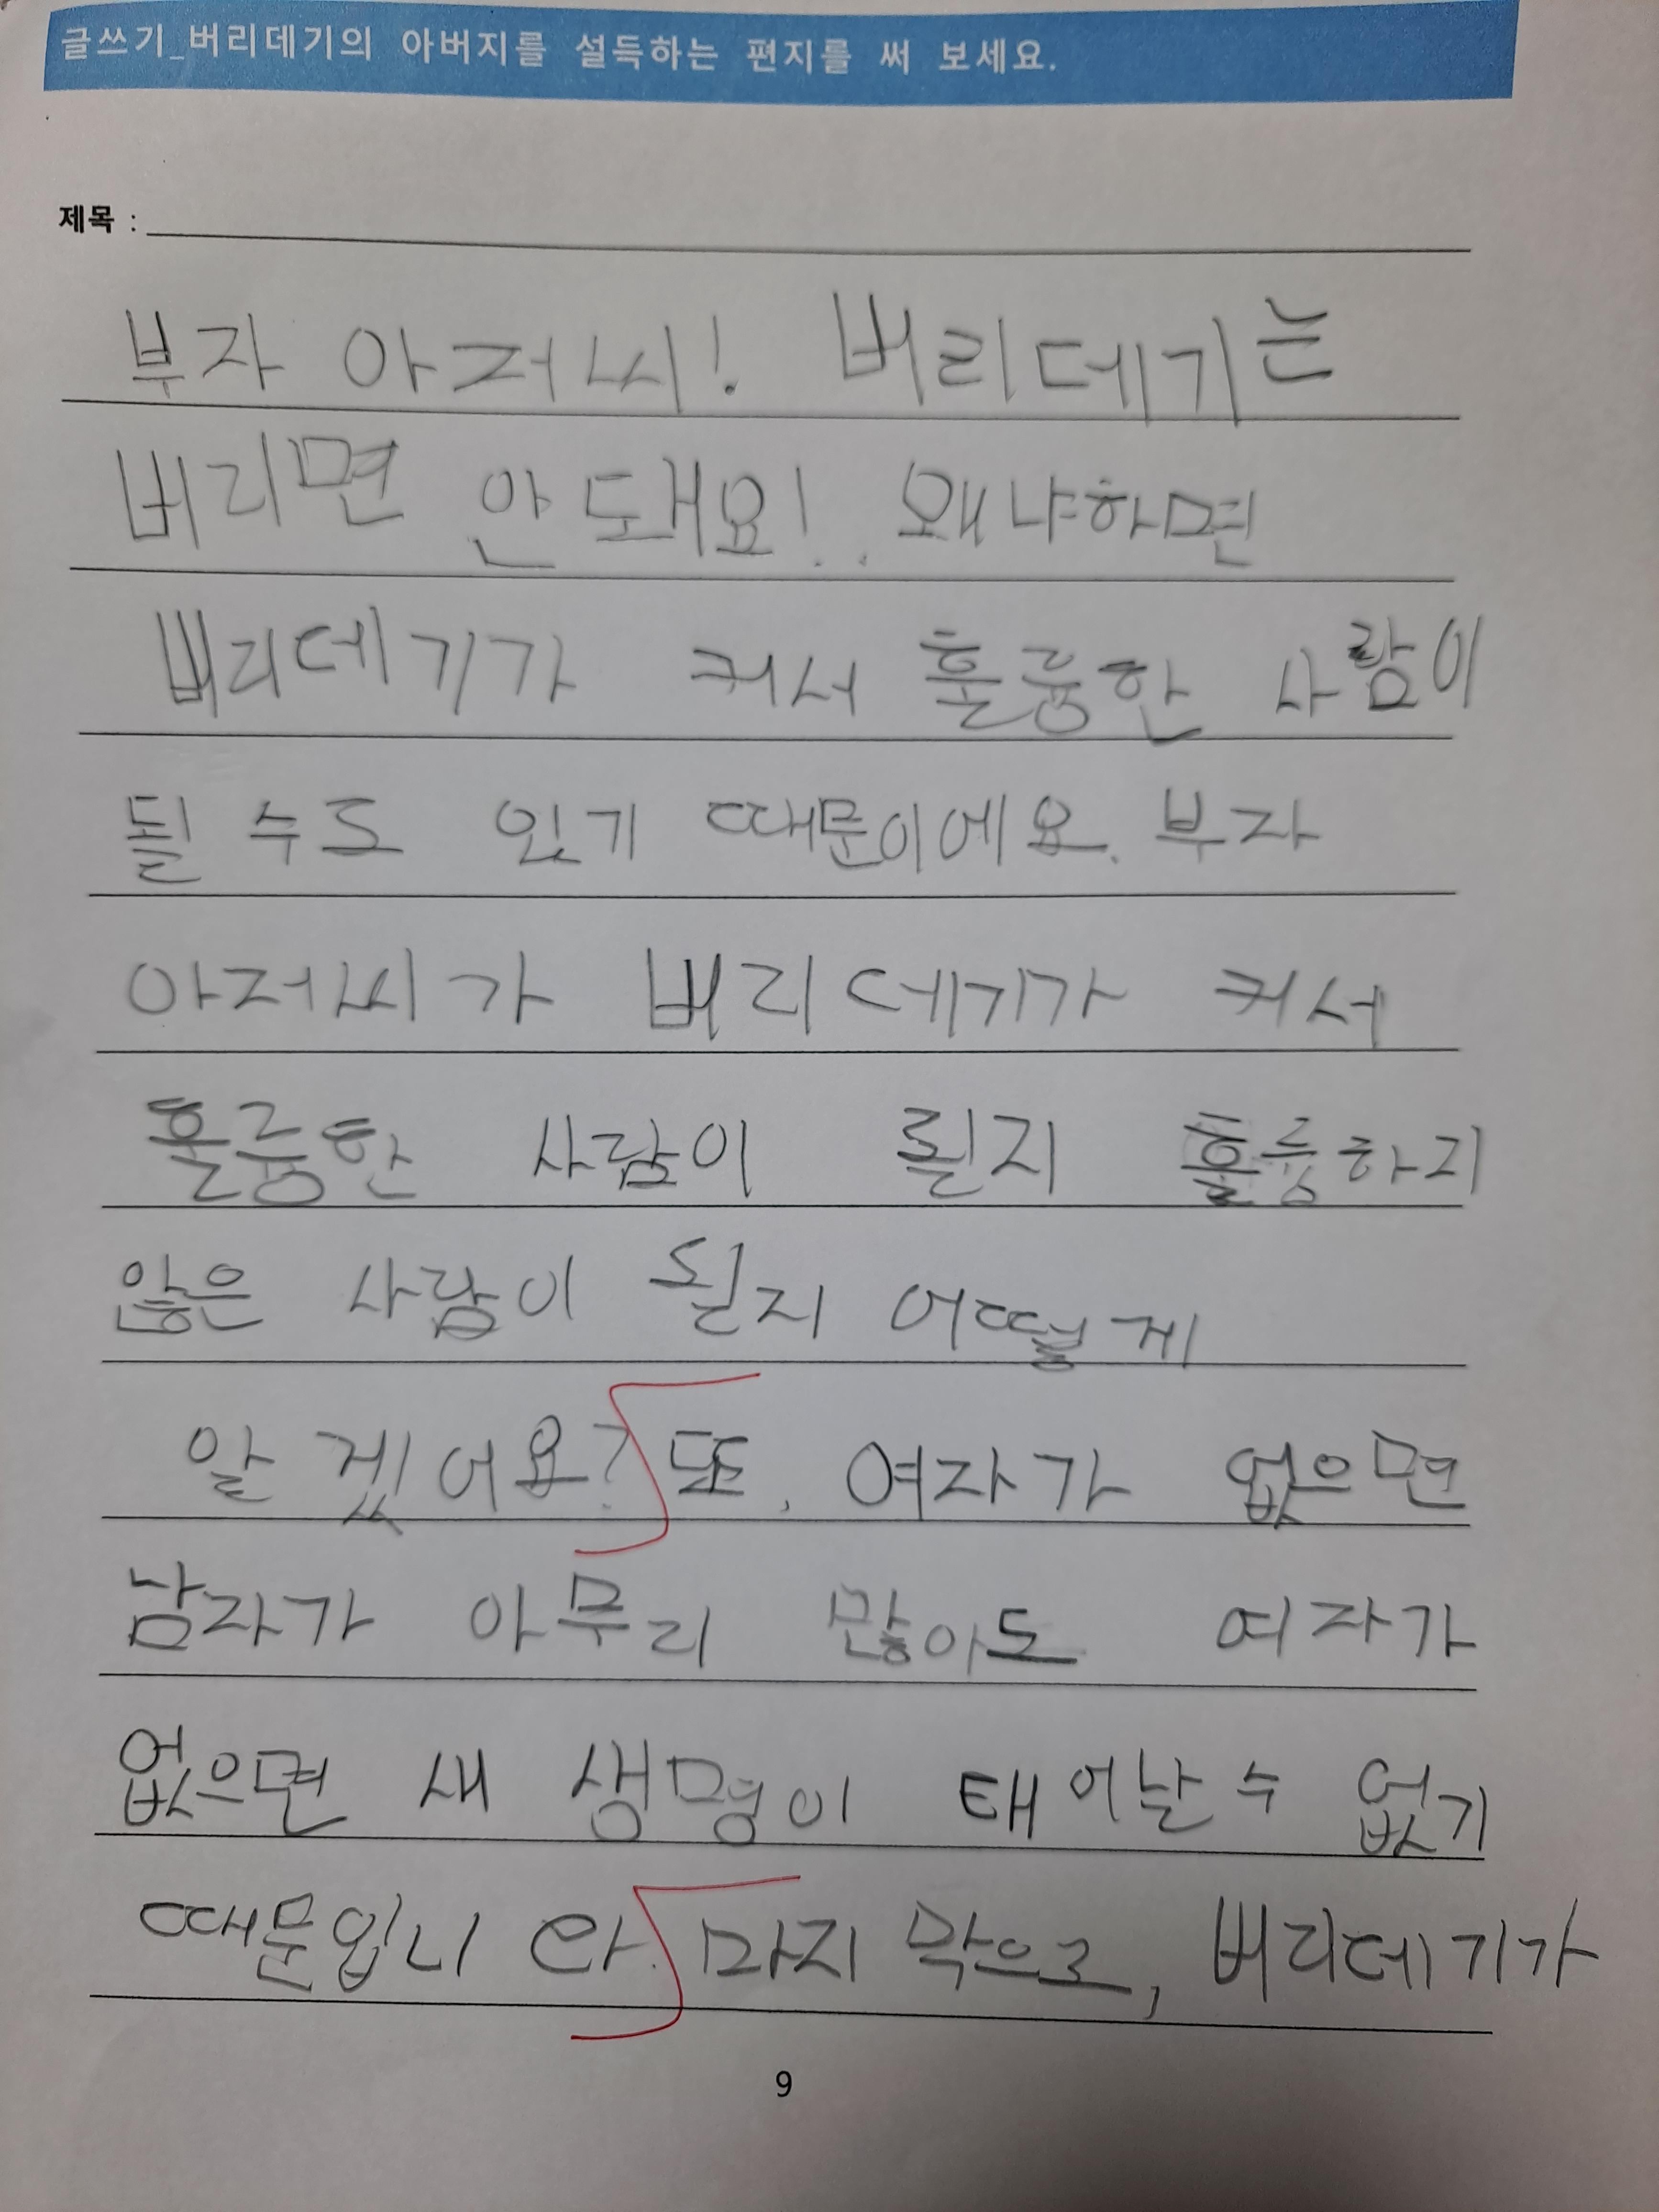 글쓰기_버리데기의 아버지를 설득하는 편지를 써 보세요.
제목 :
부자 아저씨! 버리데기는
버리면 안 돼요! 왜냐하면
버리데기가 커서 훌륭한 사람이
될 수도 있기 때문이에요. 부자
아저씨가 버리데기가 커서
훌륭한 사람이 될지 훌륭하지
않은 사람이 될지 어떻게
알겠어요? 또, 여자가 없으면
남자가 아무리 많아도 여자가
없으면 새 생명이 태어날 수 없기
때문입니다. 마지막으로, 버리데기가
9